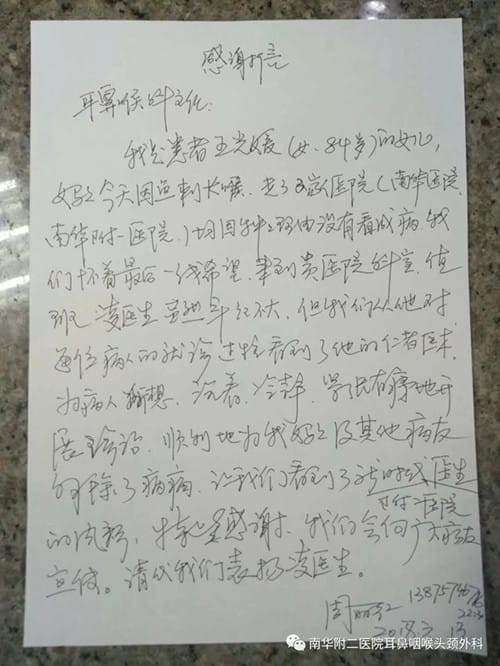 感谢信
耳鼻喉科主任:
我是患者王光媛(女、84岁)的女儿,
妈妈今天因鱼刺卡喉,走了两家医院(南华医院、
南华附一医院,)均因种种理由没有看成病,我
们怀着最后一线希望,来到贵医院科室,值
班凌医生虽然年纪不大,但我们从他对
每位病人的就诊过程看到了他的仁者医术,
为病人着想,沉着、冷静、有序地开
展诊治,顺利地为我妈妈及其他病友
解除了病痛,让我们看到了新时代医生
的风彩,特此感谢,我们会向广大病友
附二医院
宣传。请代我们表扬凌医生。
周
南华附二医院耳鼻咽喉头颈外科